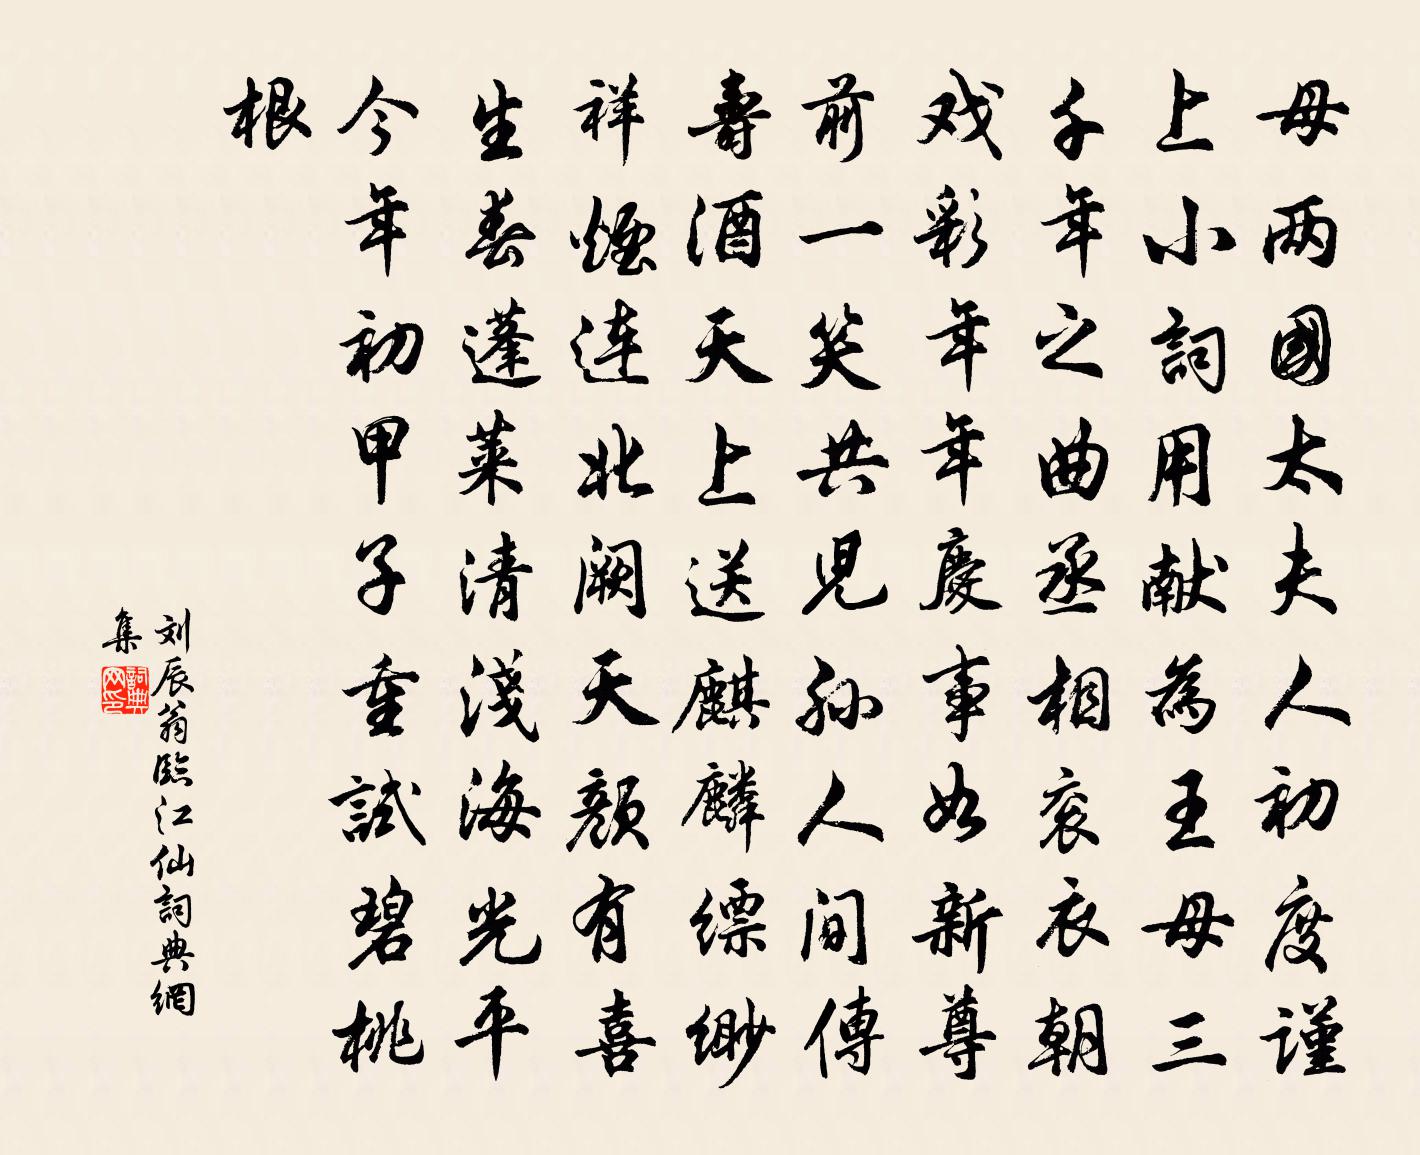 母两國太夫人初度谨
上小詞用献為王母三
千年之曲丞相衮衣朝
戏彩年年慶事如新尊
前一笑共児孙人间傳
壽酒天上送麒麟缥缈
祥煙连北阙天颜有喜
生春蓬莱清淺海光平
今年初甲子重試碧桃
根
刘辰翁臨江仙詞典網
集
詞典
网印